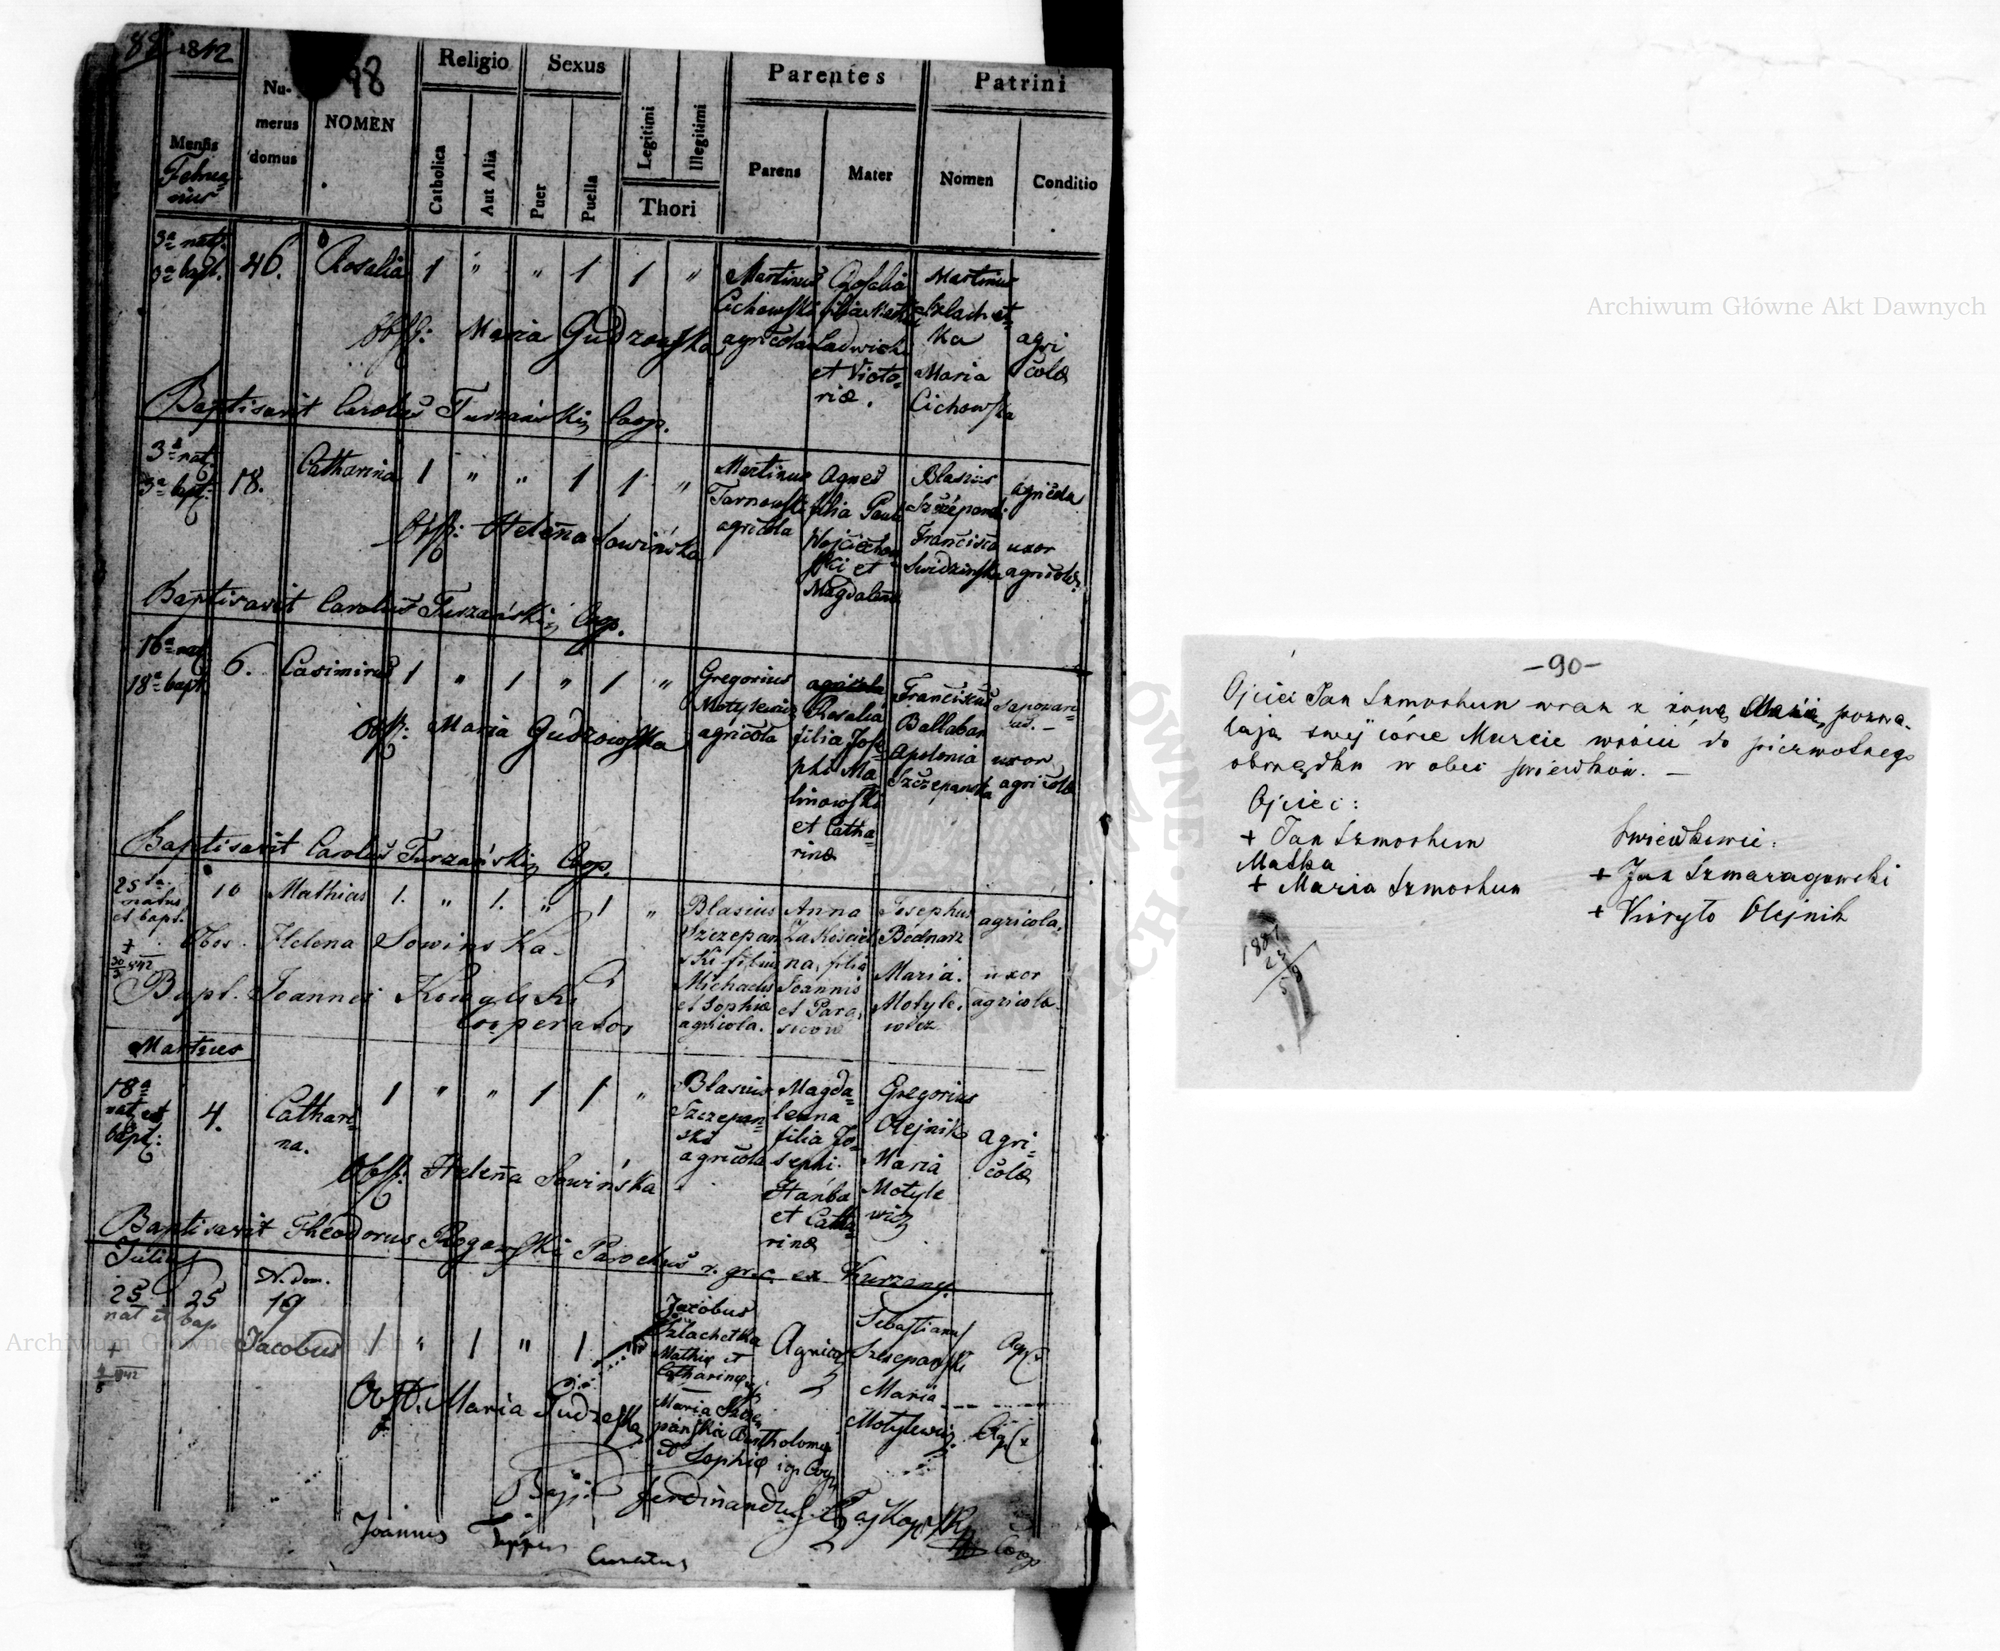 88
1842
98
Mensis
Februarius
Numerus domus
NOMEN
Religio
Catholica
Aut Alia
Sexus
Puer
Puella
Legitimi
Illegitimi
Thori
Parentes
Parens
Mater
Patrini
Nomen
Conditio
3a nat.
3a bapt.
46.
Rosalia
1 " " 1 1 "
Martinus
Cichowski
agricola
Rosalia
et Victo-
riæ.
Martinus
Szlachet-
ka
Maria
Cichowska
agri
colæ
Obst: Maria Gudzowska
Baptisavit Carolus Turzański Coop.
3a nat.
3a bapt.
18.
Catharina
1 " " 1 1 "
Martinus
Tarnowski
agricola
Agnes
filia Pauli
Wojciechow
ski et
Magdalenæ
Blasius
Szczepanski
Francisca
Swidzinska
agricola
uxor
agricolæ
Obst: Helena Sowińska
Baptisavit Carolus Turzański Coop.
16a nat
18a bapt.
6.
Casimirus
1 " 1 " 1 "
Gregorius
Motylewicz
agricola
Rosalia
filia Jose
phi Ma
linowski
et Catha
rinæ
Franciscus
Ballaban
Apolonia
Szczepanska
uxor
agricolæ
Obst: Maria Gudzowska
Baptisavit Carolus Turzański Coop.
25ta
natus
et bapt.
10
Mathias
1. " 1. " 1 "
Blasius
Szczepan
ski filius
Michaelis
et Sophiæ
agricola.
Anna
Zakosciel
na, filia
Joannis
et Para
Josephus
Bednarz
Maria
Motyle
wicz
agricola.
uxor
agricola.
Obs. Helena Sowinska
Bapt. Joannes
Cooperator
Martius
18a
nat et
bapt:
4.
Cathari-
na.
1 " " 1 1 "
Blasius
Szczepan-
ski
agricola
Magda-
lena
filia Jo-
sephi
Hańba
et Catha
rinæ
Gregorius
Olejnik
Maria
Motyle
wicz
agri-
colæ
Obst: Helena Sowińska
Baptisavit Theodorus Rogowski Parochus r. gr. c. ex Kurzany.
Julius
25
nat et bap
25
N. dom.
19
Jacobus
1 " 1 " 1
Jacobus
Szlachetka
Mathiæ et
Catharinæ
Maria Szcze
pańska Bartholomei
et Sophiæ
Agricol
Sebastianus
Szczepański
Maria
Motylewicz
Agr
Obst. Maria Gudzowska
Bapt. Ferdinandus
Coop
Joannes
Curatus
-90-
Ojciec Jan Szmorhun wraz z żoną Marią pozwa-
lają swej córce Marcie wrócić do pierwotnego
obrządku w obec świedków. —
Ojciec:
+ Jan Szmorhun
Matka
+ Maria Szmorhun
Świedkowie:
+ Jan Szmaragowski
+ Kiryło Olejnik
Archiwum Główne Akt Dawnych
Archiwum Główne Akt Dawnych